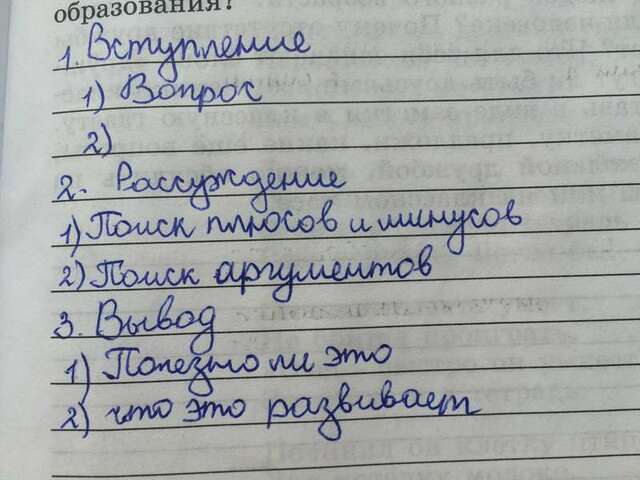 образования?
1. Вступление
1) Вопрос
2)
2. Рассуждение
1) Поиск плюсов и минусов
2) Поиск аргументов
3. Вывод
1) Полезно ли это
2) что это развивает